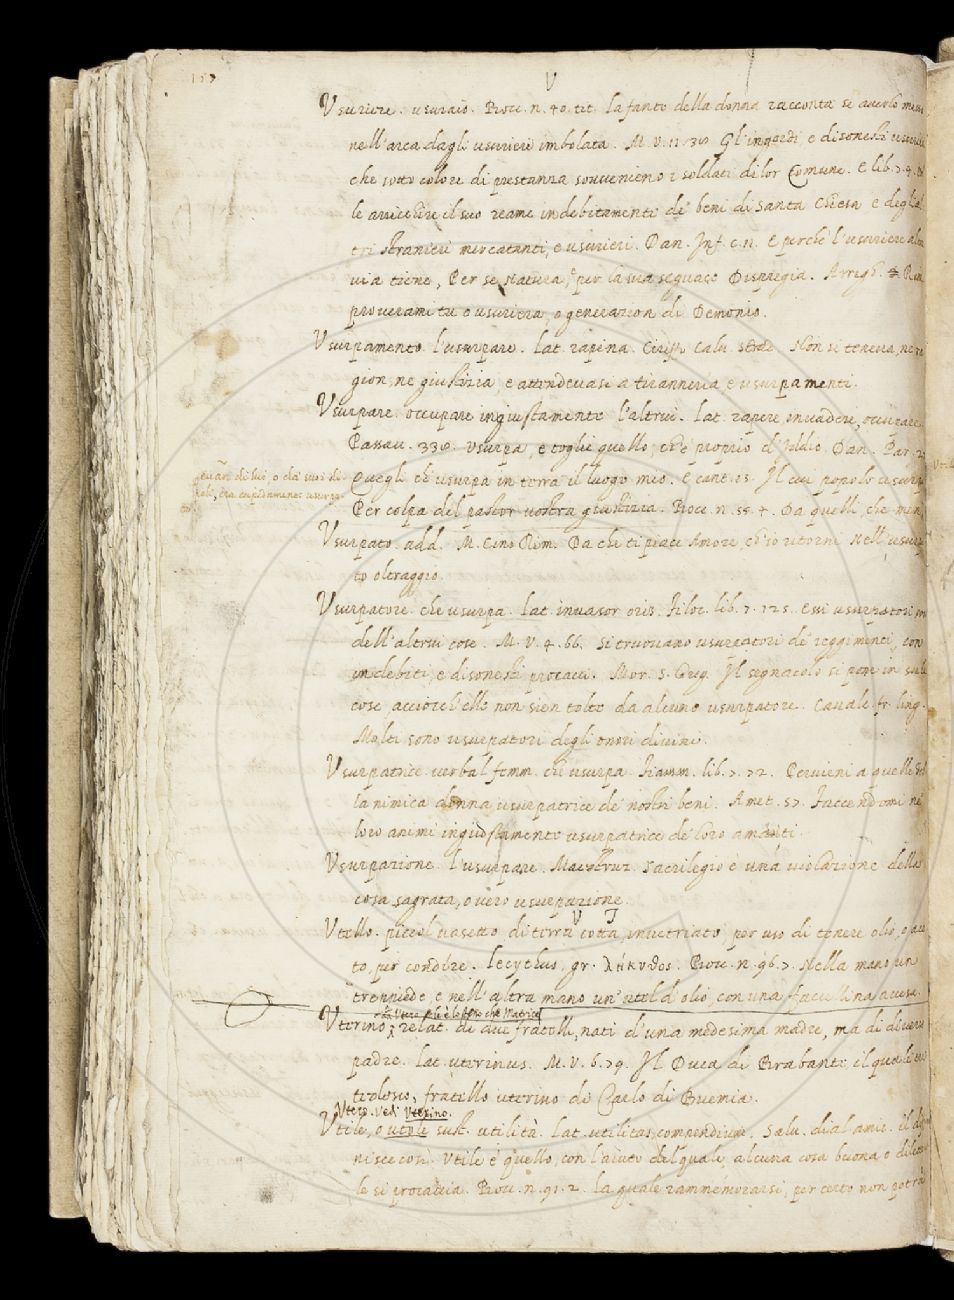 157
V
Vsuriere. usuraio. Bocc. n. 40. tit. la fante della donna racconta se averlo messo
nell'arca dagli usurieri imbolata. M. V. 11. Gl'ingordi e disonesti usurieri
che sotto colore di prestanza sovvenieno i soldati di lor Comune. E lib. 7. 9.
le arricchire il suo reame indebitamente de beni di Santa Chiesa e degli al
tri stranieri mercatanti, e usurieri. Dan. Inf. c. 11. E perchè l'usuriere altra
via tiene, Per se natura, e per la sua seguace Dispregia. Arrigh.
proverami tu o usuriera, o generazion di Demonio.
Vsurpamento. l'usurpare. Lat. rapina. Non si teneva, ne ra
gion, ne giustizia, e attendevasi a tiranneria e usurpamenti.
Vsurpare. occupare ingiustamente l'altrui. Lat. rapere, invadere, occupare.
Passav. 330. Vsurpa, e toglie quello, ch'è proprio d'Iddio. Dan. Par. 27
evan. di lui, o da' suoi di
Quegli ch'usurpa in terra il luogo mio. E cant. 15. Il cui popolo usurpa
Per colpa del pastor vostra giustizia. Bocc. n. 55. 4. Da quelli, che men
Vsurpato. add. M. Cino Rim. Da che ti piace Amore, ch'io ritorni Nell'usurpa
to oltraggio.
Vsurpatore. che usurpa. Lat. invasor oris. Filoc. lib. 7. 125. essi usurpatori
dell'altrui cose. M. V. 4. 66. Si truovano usurpatori de reggimenti, con
indebiti, e disonesti procacci. Mor. S. Greg. Il segnacolo si pone in sulle
cose acciocch'elle non sien tolte da alcuno usurpatore. Cavalc. fr. ling.
Molti sono usurpatori degli onori divini.
Vsurpatrice. verbal femm. che usurpa. Fiamm. lib. 7. 72. Pervieni a quelle
la nimica donna usurpatrice de nostri beni. Amet. 57. Faccendomi ne
loro animi ingiustamente usurpatrice de loro amanti.
Vsurpazione. l'usurpare. Maestruz. Sacrilegio è una violazione della
cosa sagrata, overo usurpazione.
Vtello. picciol vasetto di terra cotta, invetriato, per uso di tenere olio, o ace
to, per condire. Lecythus, gr. λήκυθος. Bocc. n. 96. 7. Nella mano un
treppiede, e nell'altra mano un'utel d'olio, con una facellina accesa.
da Vtero che è lo stesso che Matrice
Vterino, relat. de due fratelli, nati d'una medesima madre, ma di diverso
padre. Lat. uterinus. M. V. 6. 79. Il Duca di Brabante il quale era
fratello uterino de Carlo di Buemia.
Vtero. Vedi Vterino.
Vtile, o utole sust. utilità. Lat. utilitas, compendium. Salu. dial. amic. il dif
nisce così. Vtile è quello, con l'aiuto del quale, alcuna cosa buona o dilette
le si procaccia. Bocc. n. 91. 2. la quale rammemorarsi, per certo non potrà